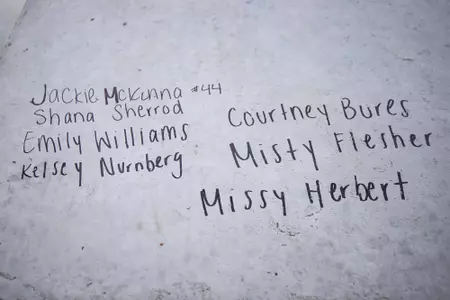 Jackie McKinna #44
Shana Sherrod
Emily Williams
Kelsey Nurnberg
Courtney Bures
Misty Flesher
Missy Herbert